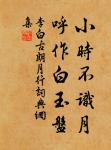 小時不識月
呼作白玉盤
李白古朗月行詞典網
集